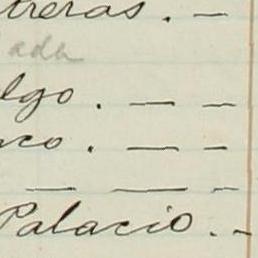 treras . —
ada
lgo . — —
nco . — —
— — —
Palacio . -